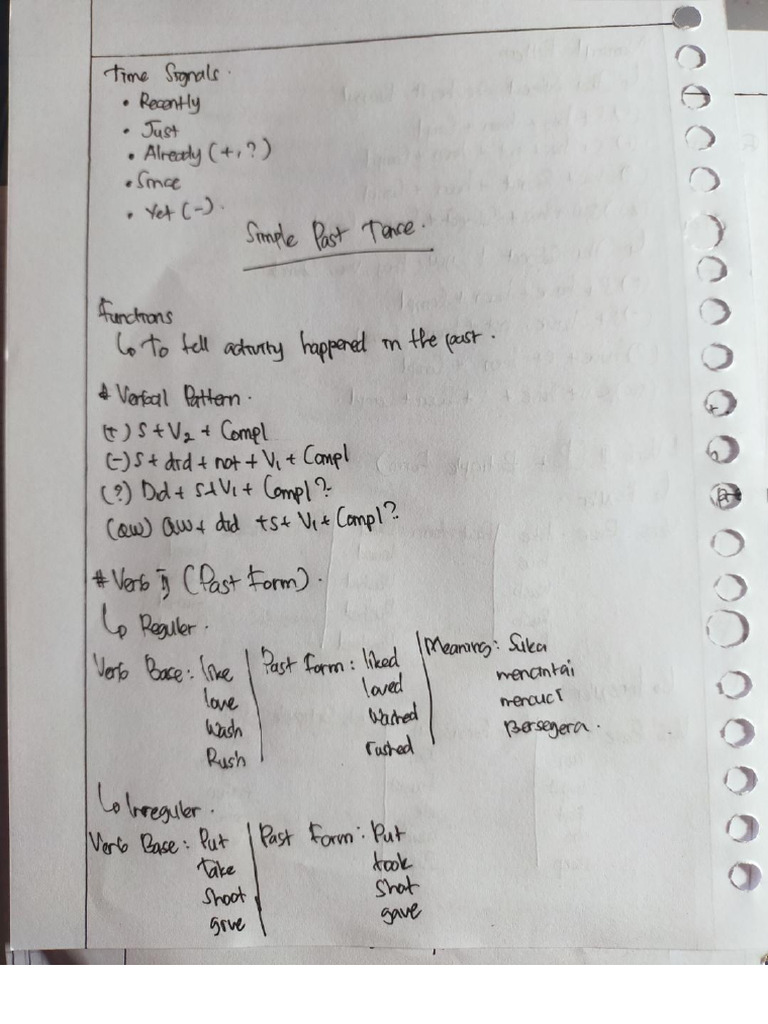 Time Signals.
• Recently
• Just
• Already (+, ?)
• Since
• Yet (-).
Simple Past Tence.
Functions
↳ To tell activity happened in the past.
# Verbal Pattern.
(+) S + V2 + Compl
(-) S + did + not + V1 + Compl
(?) Did + S + V1 + Compl?
(QW) QW + did + S + V1 + Compl?
# Verb II (Past Form).
↳ Reguler.
Verb Base: like | Past Form: liked | Meaning: Suka
love | loved | mencintai
Wash | Washed | mencuci
Rush | rushed | Bersegera.
↳ Irreguler.
Verb Base: Put | Past Form: Put
Take | took
Shoot | Shot
give | gave